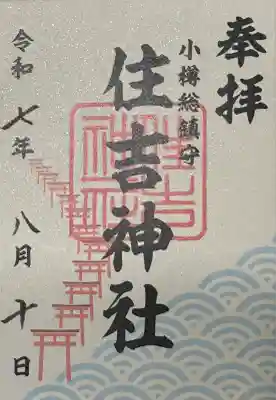 奉拝
小樽総鎮守
住吉神社
令和七年
八月十日
住吉神社